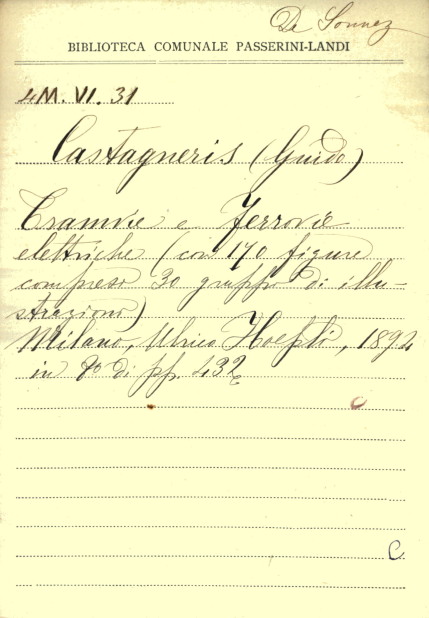 De Sonnaz
BIBLIOTECA COMUNALE PASSERINI-LANDI
4M. VI. 31
Castagneris (Guido)
Tramvie e Ferrovie
elettriche (con 170 figure
compreso 30 gruppi di illu-
strazioni)
Milano, Ulrico Hoepli, 1894
in 8° di pp. 432
C